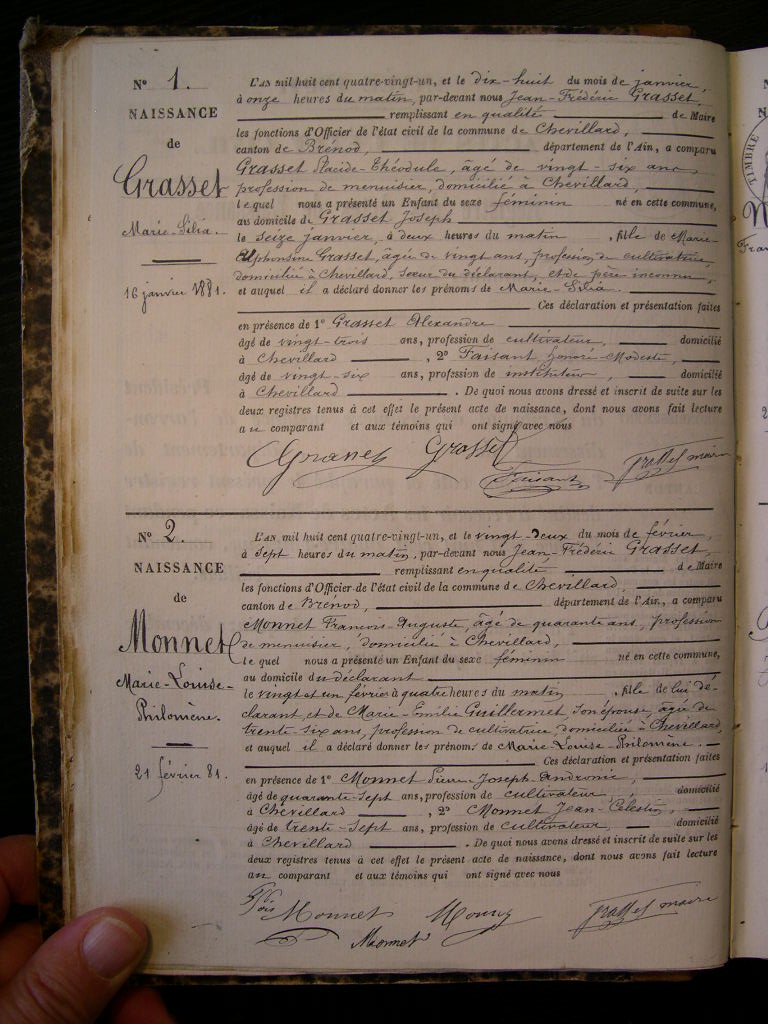 N° 1.
NAISSANCE
de
Grasset
Marie-Silia.
16 janvier 1881.
L'AN mil huit cent quatre-vingt-un, et le dix-huit du mois de janvier,
à onze heures du matin, par-devant nous Jean-Frédéric Grasset,
remplissant en qualité de Maire
les fonctions d'Officier de l'état civil de la commune de Chevillard,
canton de Brénod, département de l'Ain, a comparu
Grasset Placide-Théodule, âgé de vingt-six ans,
profession de menuisier, domicilié à Chevillard,
lequel nous a présenté un Enfant du sexe féminin né en cette commune,
au domicile de Grasset Joseph
le seize janvier, à deux heures du matin, fille de Marie-
Alphonsine Grasset, âgée de vingt ans, profession de cultivatrice,
domiciliée à Chevillard, sœur du déclarant, et de père inconnu,
et auquel il a déclaré donner les prénoms de Marie-Silia.
Ces déclaration et présentation faites
en présence de 1° Grasset Alexandre
âgé de vingt-trois ans, profession de cultivateur, domicilié
à Chevillard, 2° Faisant Honoré-Modeste,
âgé de vingt-six ans, profession de instituteur, domicilié
à Chevillard. De quoi nous avons dressé et inscrit de suite sur les
deux registres tenus à cet effet le présent acte de naissance, dont nous avons fait lecture
au comparant et aux témoins qui ont signé avec nous
Grasset Faisant Grasset maire
N° 2.
NAISSANCE
de
Monnet
Marie-Louise-
Philomène.
21 février 81.
L'AN mil huit cent quatre-vingt-un, et le vingt-deux du mois de février,
à sept heures du matin, par-devant nous Jean-Frédéric Grasset,
remplissant en qualité de Maire
les fonctions d'Officier de l'état civil de la commune de Chevillard,
canton de Brénod, département de l'Ain, a comparu
Monnet François-Auguste, âgé de quarante ans, profession
de menuisier, domicilié à Chevillard,
lequel nous a présenté un Enfant du sexe féminin né en cette commune,
au domicile du déclarant
le vingt et un février à quatre heures du matin, fille de lui dé-
clarant, et de Marie-Emilie Guillermet, son épouse, âgée de
trente-six ans, profession de cultivatrice, domiciliée à Chevillard,
et auquel il a déclaré donner les prénoms de Marie-Louise-Philomène.
Ces déclaration et présentation faites
en présence de 1° Monnet Pierre-Joseph-Andronic,
âgé de quarante-sept ans, profession de cultivateur, domicilié
à Chevillard, 2° Monnet Jean-Célestin,
âgé de trente-sept ans, profession de cultivateur, domicilié
à Chevillard. De quoi nous avons dressé et inscrit de suite sur les
deux registres tenus à cet effet le présent acte de naissance, dont nous avons fait lecture
au comparant et aux témoins qui ont signé avec nous
Monnet Monnet Grasset maire
Monnet
TIMBRE